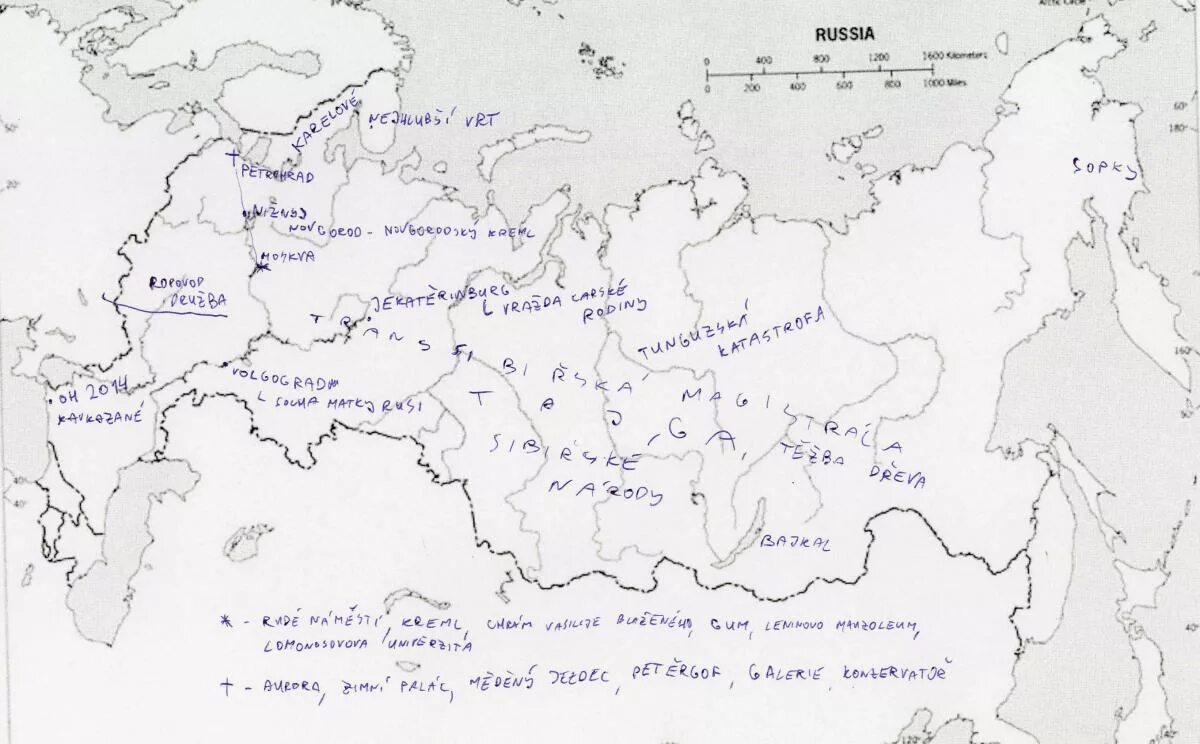 Arctic Circle
RUSSIA
0 400 800 1200 1600 Kilometers
0 200 400 600 800 1000 Miles
60°
180°
50°
20°
160°
40°
40°
40°
120°
140°
KARELOVÉ
NEJHLUBŠÍ VRT
SOPKY
PETROHRAD
NIŽNYJ
NOVGOROD - NOVGORODSKÝ KREML
MOSKVA
ROPOVOD
DRUŽBA
JEKATĚRINBURG
VRAŽDA CARSKÉ
RODINY
TRANSSIBIŘSKÁ MAGISTRÁLA
TUNGUZSKÁ
KATASTROFA
VOLGOGRAD
SOCHA MATKY RUSI
OH 2014
KAVKAZANÉ
TAJGA, TĚŽBA DŘEVA
SIBIŘSKÉ
NÁRODY
BAJKAL
* - RUDÉ NÁMĚSTÍ, KREML, CHRÁM VASILIJE BLAŽENÉHO, GUM, LENINOVO MAUZOLEUM,
LOMONOSOVOVA UNIVERZITA
† - AURORA, ZIMNÍ PALÁC, MĚDĚNÝ JEZDEC, PETĚRGOF, GALERIE, KONZERVATOŘ